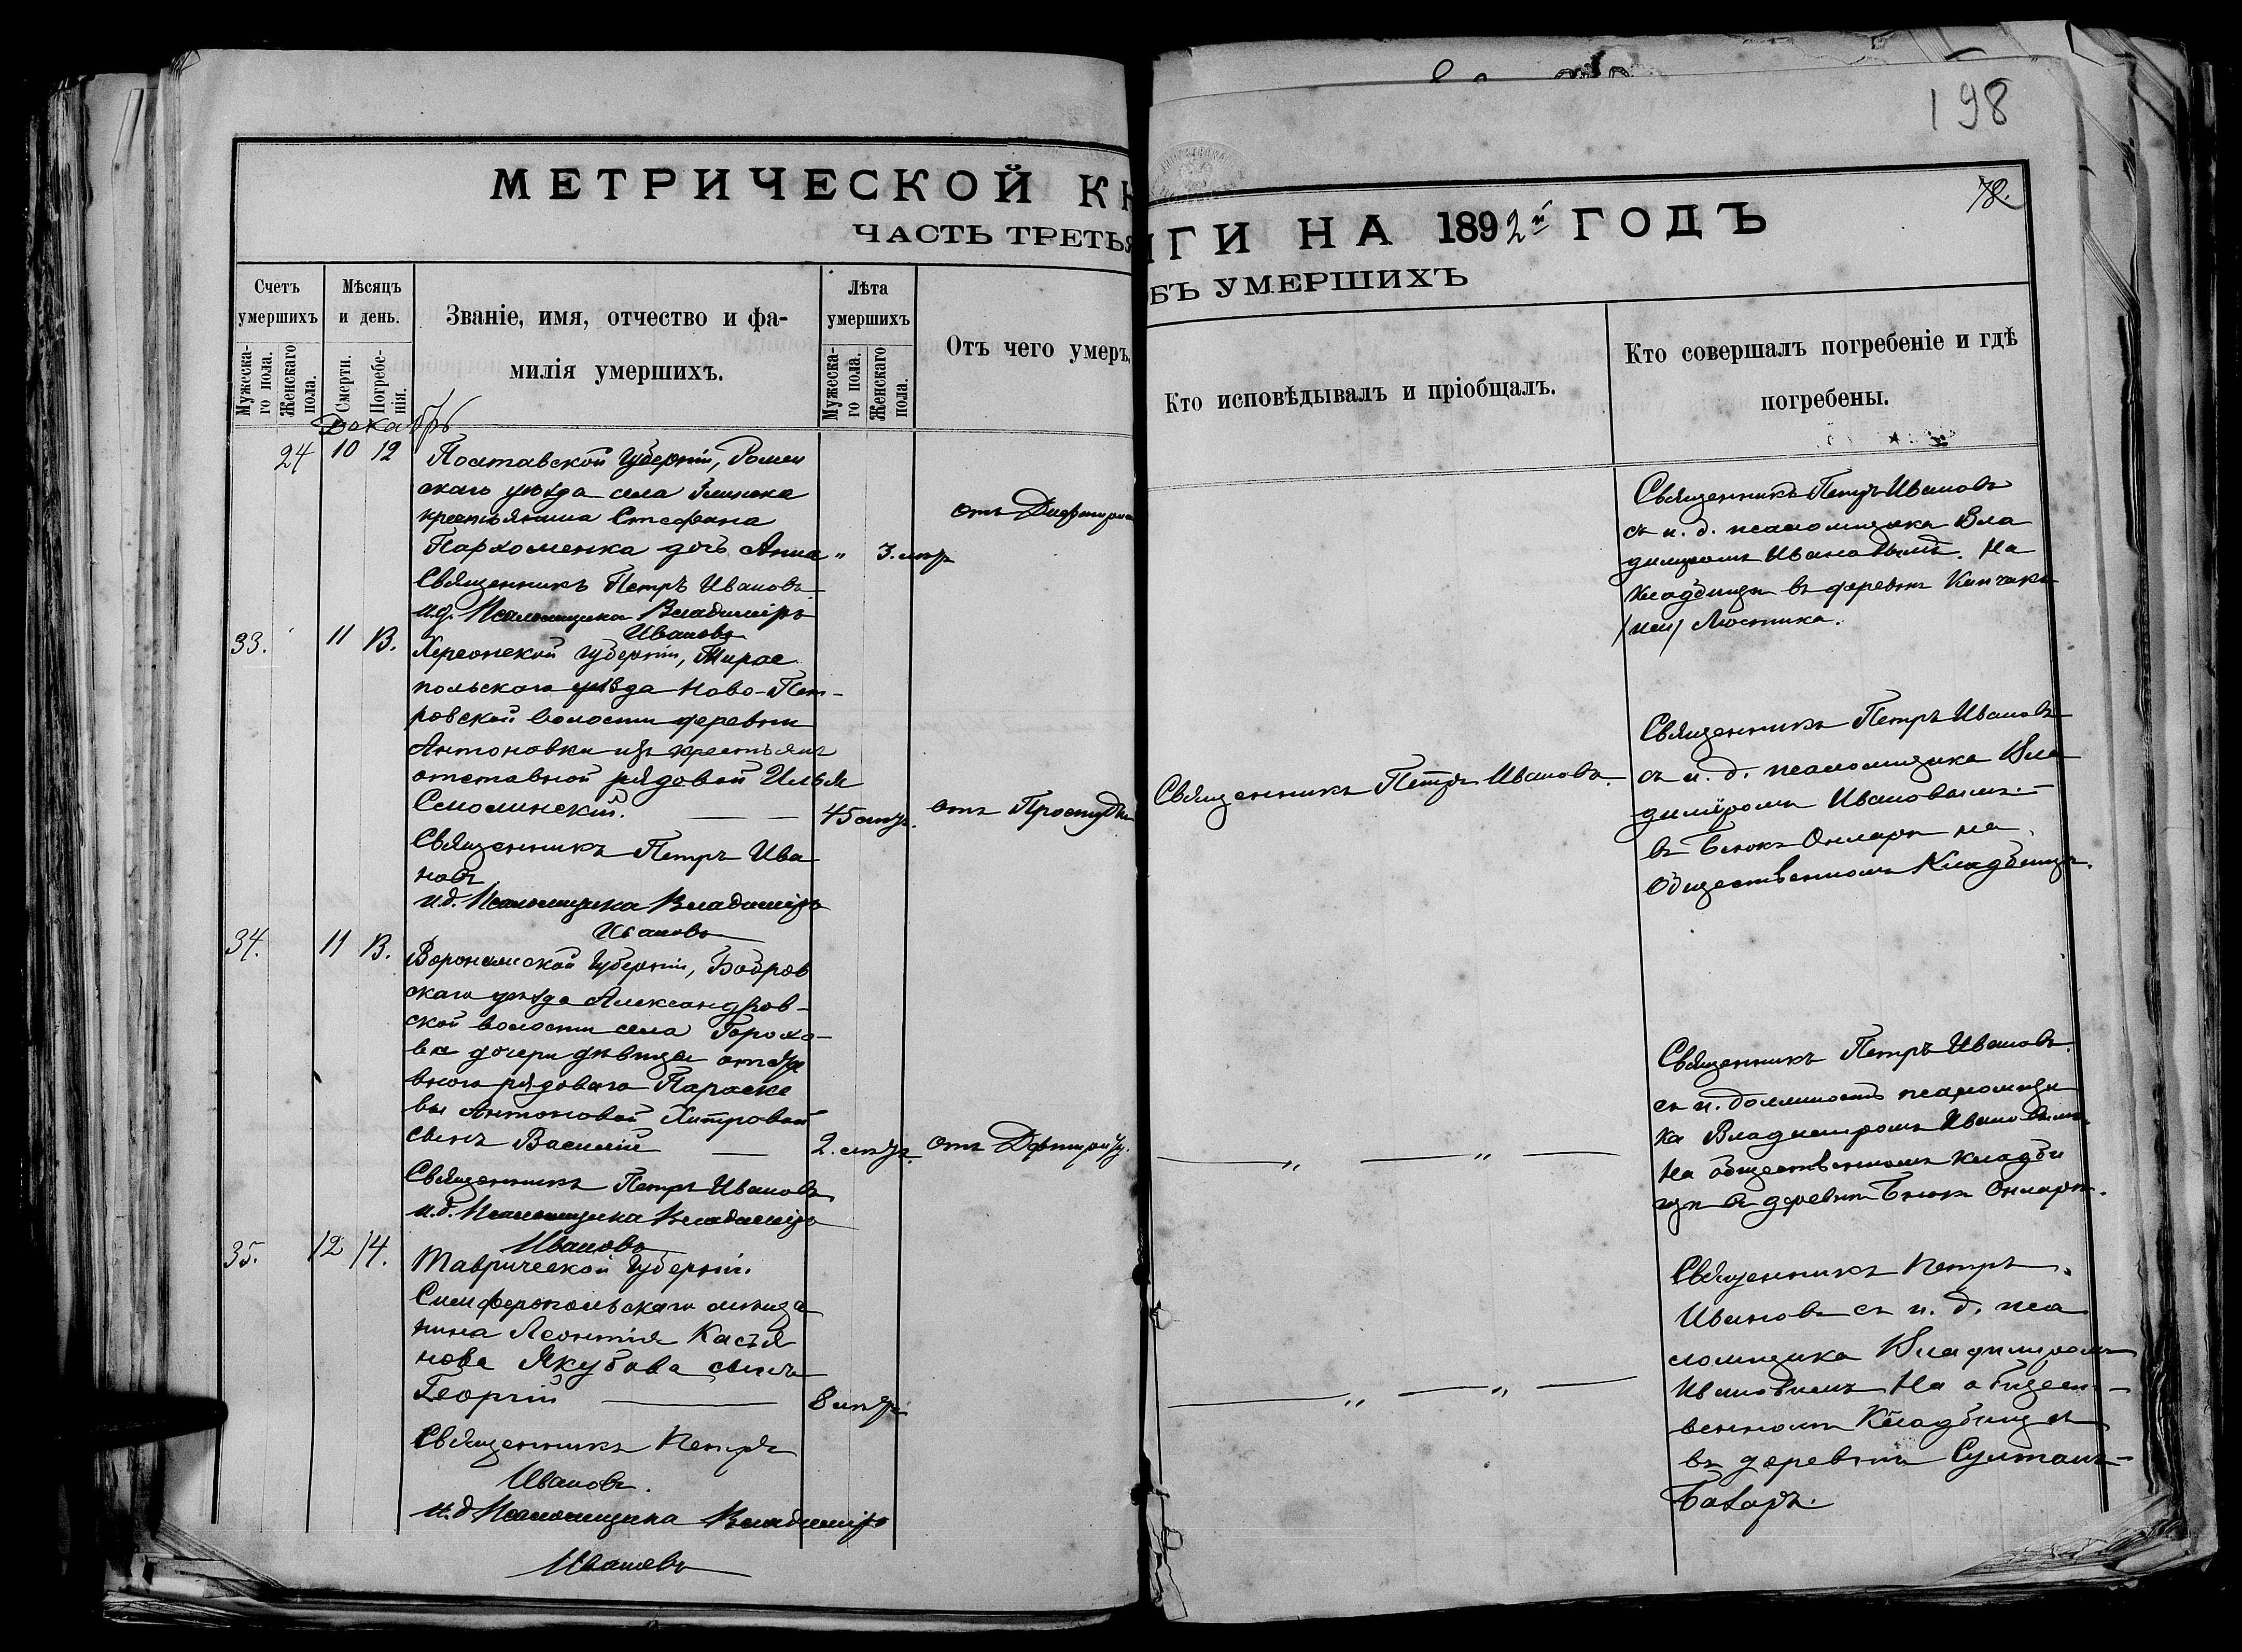 198
78.
МЕТРИЧЕСКОЙ КН
ИГИ НА 1892й ГОДЪ
ЧАСТЬ ТРЕТЬЯ
БЪ УМЕРШИХЪ
Счетъ умершихъ
Мужеска-го пола.
Женскаго пола.
Мѣсяцъ и день.
Смерти.
Погребе-нія.
Званіе, имя, отчество и фа-
милія умершихъ.
Лѣта умершихъ
Мужеска-го пола.
Женскаго пола.
Отъ чего умеръ.
Кто исповѣдывалъ и пріобщалъ.
Кто совершалъ погребеніе и гдѣ
погребены.
Декабрь
24 10 12
Полтавской Губерніи, Ромен
скаго уѣзда села Глинска
крестьянина Стефана
Пархоменка дочь Анна " 3. лѣтъ
отъ Дифтрита
Священникъ Петръ Ивановъ
и.д. Псаломщика Владиміръ
Ивановъ
Священникъ Петръ Ивановъ
съ и. д. псаломщика Вла
диміромъ Ивановымъ. На
кладбищѣ въ деревнѣ Кипчакъ
(или) Люстика.
33. 11 13.
Херсонской Губерніи, Тирас
польскаго уѣзда Ново-Пет-
ровской волости деревни
Антоновки изъ крестьянъ
отставной рядовой Илья
Смолинскій. 45 лѣтъ. отъ Простуды
Священникъ Петръ Ива
новъ
и.д. Псаломщика Владиміръ
Ивановъ
Священникъ Петръ Ивановъ.
Священникъ Петръ Ивановъ
съ и. д. псаломщика Вла
диміромъ Ивановымъ.
въ Бьюкъ Онларѣ на
Общественномъ Кладбищѣ.
34. 11 13.
Воронежской Губерніи, Бобров
скаго уѣзда Александров-
ской волости села Горохо-
вки дочери дѣвицы отста
внаго рядоваго Параске
вы Антоновой Хитровой
сынъ Василій 2. лѣтъ. отъ Дифтрита.
Священникъ Петръ Ивановъ
и.д. Псаломщика Владиміръ
Ивановъ
" "
Священникъ Петръ Ивановъ
съ и. должность псаломщи
ка Владиміромъ Ивановымъ.
На общественномъ кладби
щѣ въ деревнѣ Бьюкъ Онларѣ.
35. 12 14.
Таврической Губерніи.
Симферопольскаго мѣща
нина Леонтія Касья
нова Якубова сынъ
Георгій 8 лѣтъ
Священникъ Петръ
Ивановъ.
и.д Псаломщика Владиміръ
Ивановъ
" "
Священникъ Петръ
Ивановъ съ и. д. пса
ломщика Владиміромъ
Ивановымъ На общест-
венномъ Кладбищѣ
въ деревнѣ Султанъ-
Базаръ.